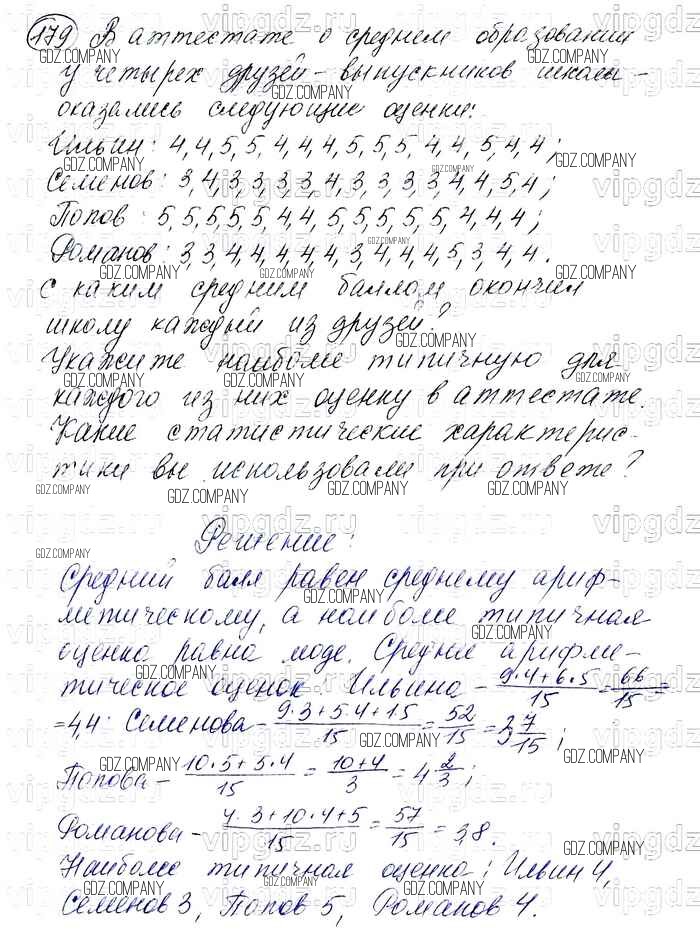 179 В аттестате о среднем образовании
у четырех друзей - выпускников школы -
оказались следующие оценки:
Ильин: 4,4,5,5,4,4,4,5,5,5,4,4,5,4,4;
Семенов: 3,4,3,3,3,3,4,3,3,3,3,4,4,5,4;
Попов: 5,5,5,5,5,4,4,5,5,5,5,5,4,4,4;
Романов: 3,3,4,4,4,4,4,3,4,4,4,5,3,4,4.
С каким средним баллом окончил
школу каждый из друзей?
Укажите наиболее типичную для
каждого из них оценку в аттестате.
Какие статистические характерис-
тики вы использовали при ответе?
Решение:
Средний балл равен среднему ариф-
метическому, а наиболее типичная
оценка равна моде. Среднее арифме-
тическое оценок Ильина - (9·4+6·5)/15 = 66/15 =
=4,4. Семенова - (9·3+5·4+1·5)/15 = 52/15 = 3 7/15;
Попова - (10·5+5·4)/15 = (10+4)/3 = 4 2/3;
Романова - (4·3+10·4+5)/15 = 57/15 = 3,8.
Наиболее типичная оценка: Ильин 4,
Семенов 3, Попов 5, Романов 4.
GDZ.COMPANY
vipgdz.ru